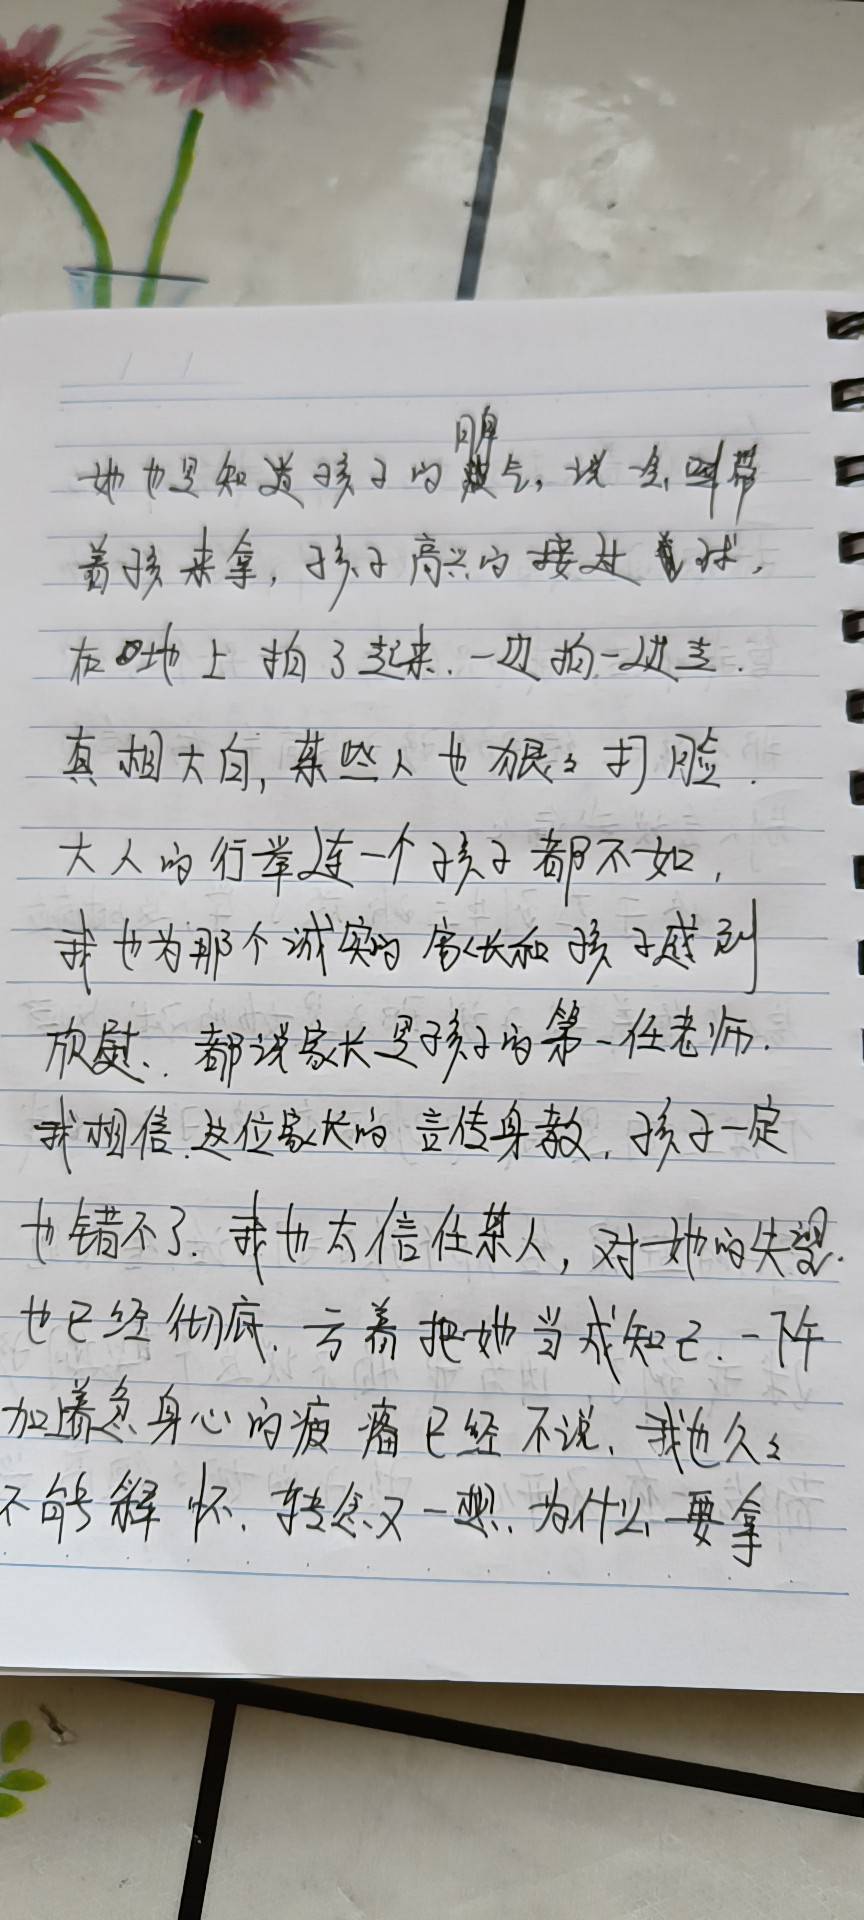 她也是知道孩子的脾气，说一会叫带
着孩来拿，孩子高兴的接过球，
在地上拍了起来.一边拍一边走.
真相大白，某些人也狠々打脸.
大人的行举连一个孩子都不如，
我也为那个诚实的家长和孩子感到
欣慰.都说家长是孩子的第一任老师.
我相信.这位家长的言传身教，孩子一定
也错不了.我也太信任某人，对她的失望.
也已经彻底.亏着把她当成知己.一下午
加着急身心的疲痛已经不说，我也久々
不能释怀.转念又一想.为什么要拿